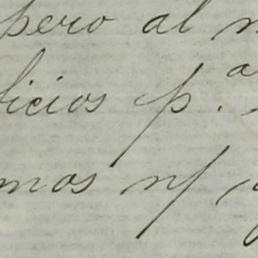 pero al
licios p.ª
mos n/